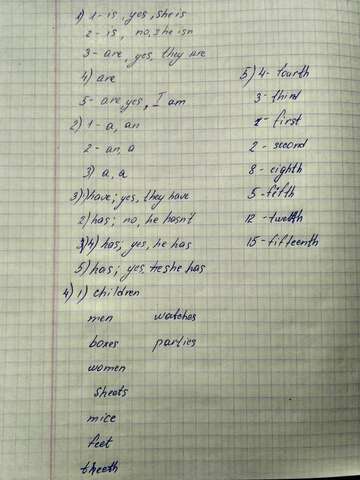 1) 1 - is, yes, she is
2 - is, no, she isn
3 - are, yes, they are
4) are
5 - are, yes, I am
2) 1 - a, an
2 - an, a
3) a, a
3) 1) have; yes, they have
2) has; no, he hasn't
3) (4) has; yes, he has
5) has; yes, she has
4) 1) children
men
boxes
women
sheets
mice
feet
theeth
watches
parties
5) 4 - fourth
3 - third
1 - first
2 - second
8 - eighth
5 - fifth
12 - twelth
15 - fifteenth